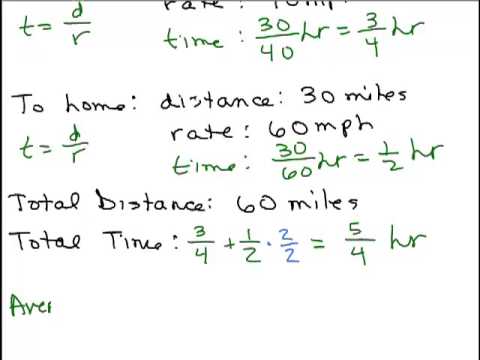 t = d/r
rate: 40 mph
time: 30/40 hr = 3/4 hr
To home: distance: 30 miles
t = d/r
rate: 60 mph
time: 30/60 hr = 1/2 hr
Total Distance: 60 miles
Total Time: 3/4 + 1/2 · 2/2 = 5/4 hr
Aver